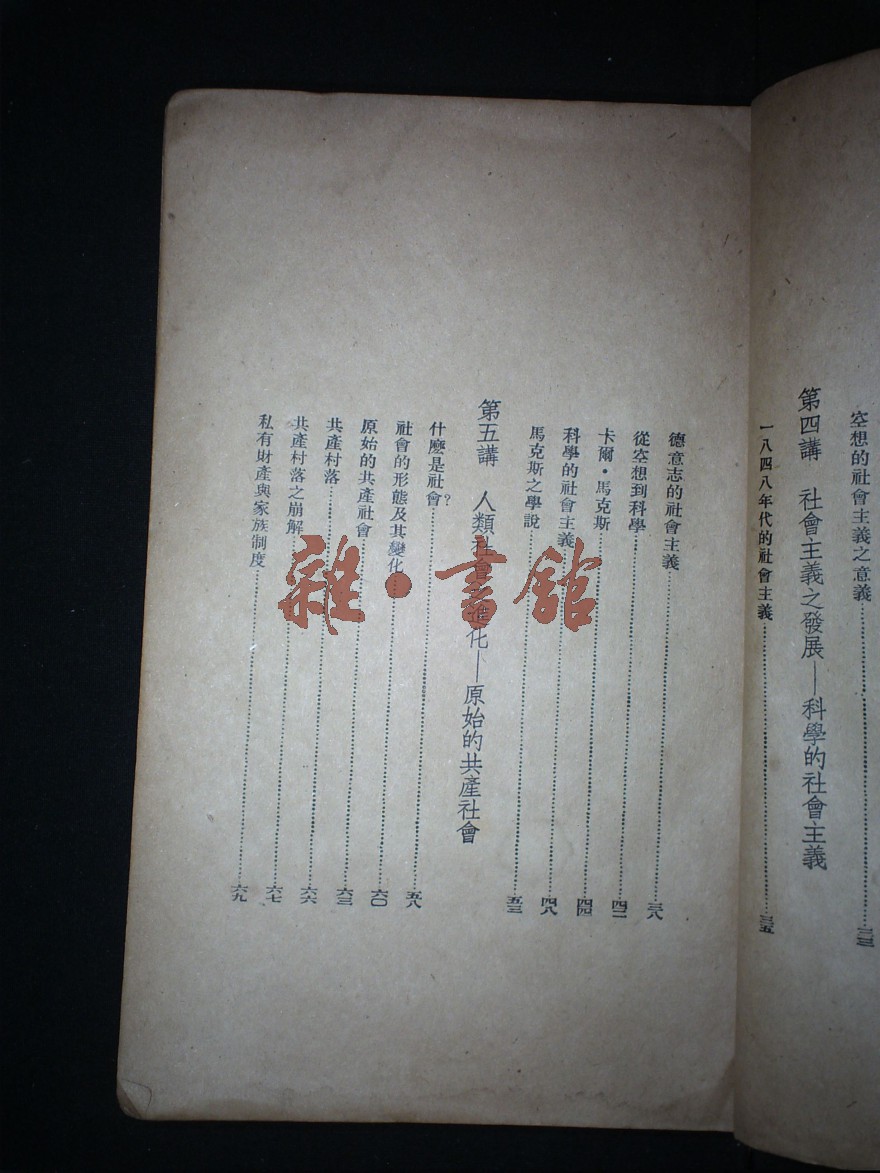 空想的社會主義之意義……三三
第四講　社會主義之發展—科學的社會主義
一八四八年代的社會主義……三五
德意志的社會主義……三八
從空想到科學……四二
卡爾・馬克斯……四四
科學的社會主義……四八
馬克斯之學說……五三
第五講　人類社會之進化—原始的共產社會
什麽是社會?……五八
社會的形態及其變化……六〇
原始的共產社會……六三
共產村落……六六
共產村落之崩解……六七
私有財產與家族制度……六九
雜・書館